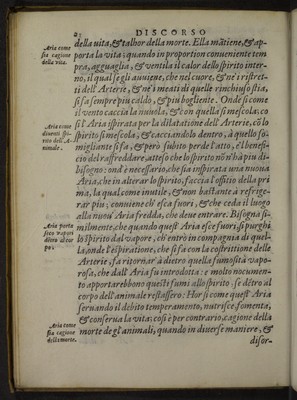 DISCORSO
della uita, & talhor della morte. Ella mãtiene, & ap-
porta la vita; quando in proportion conueniente tem
pra, agguaglia, & ventila il calor dello spirito inter-
no, il qual se gli auuigne, che nel cuore, & ne i ristret-
ti dell'Arterie, & ne i meati di quelle rinchiuso stia,
si fa sempre piu caldo, & piu bogliente. Onde si come
il vento caccia la nuuola, & con quella si mescola: co
si l'Aria spirata per la dilatatione dell'Arterie, cõ lo
spirito si mescola, & cacciandolo dentro, à quello so-
migliante si fa, & però subito perde l'atto, e'l benefi-
cio del raffreddare, atteso che lo spirito nõ n'hà piu di-
bisogno: ond'è necessario, che sia inspirata una nuoua
Aria, che in alterar lo spirito, faccia l'officio della pri
ma, la qual come inutile, & non bastante à refrige-
rar piu; conuiene ch'esca fuori, & che ceda il luogo
alla nuou'Aria fredda, che deue entrare. Bisogna si-
milmente, che quando quest'Aria esce fuori, si purghi
lo spirito dal vapore, ch'entrò in compagnia di quel-
la, onde l'espiratione, che si fà con la costrettione delle
Arterie, fa ritornar à dietro quella fumosità vapo-
rosa, che dall'Aria fu introdotta: e molto nocumen-
to apportarebbono questi fumi allo spirito, se dẽtro al
corpo dell'animale restassero: Hor si come quest'Aria
seruando il debito temperamento, nutrisce, fomenta,
& conserua la vita: così è per contrario, cagione della
morte degl'animali, quando in diuerse maniere, &
disor-
Aria come
sia cagione
della vita.
Aria come
diuenti spi-
rito dell'A-
nimale.
Aria porta
seco vapori
dẽtro al cor
po.
Aria come
sia cagione
della morte.